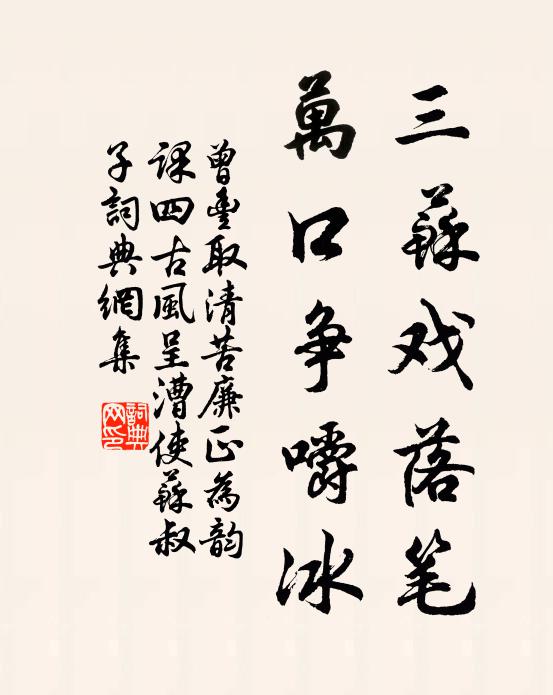 三蘇戏落笔
萬口争嚼冰
曾豊取清苦廉正為韵
課四古風呈漕使蘇叔
子詞典網集
詞典网印